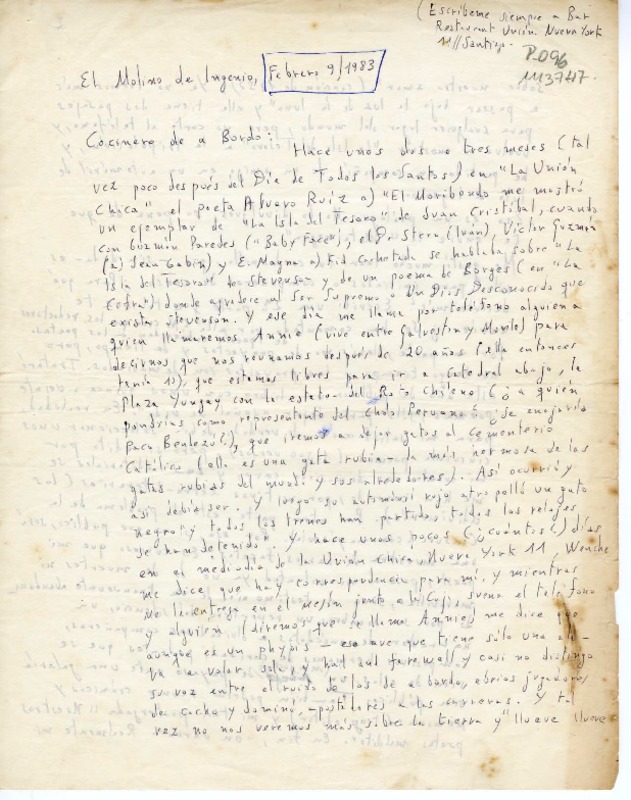 (Escríbeme siempre a Bar
Restaurant Unión. Nueva York
11//Santiago.
P.096
1113747.
El Molino de Ingenio, Febrero 9/1983
Cocinero de a Bordo:
Hace unos dos o tres meses (tal
vez poco después del Día de Todos los Santos) en "La Unión
Chica" el poeta Alvaro Ruiz a) "El Moribundo me mostró
un ejemplar de "La Isla del Tesoro" de Juan Cristóbal, cuando
con Guzmán Paredes ("Baby Face"), el Dr. Stern (Iván), Víctor Guzmán
(a) Jean Gabin) y E. Magno a) Kid Cachetada se hablaba sobre "La
Isla del Tesoro" de Stevenson y de un poema de Borges (en "La
Cifra") donde agradece al Ser Supremo o Un Dios Desconocido que
exista Stevenson. Y ese día me llama por teléfono alguien a
quien llamaremos Annie (vive entre Galvestin y Movile) para
decirnos que nos reunamos después de 20 años (ella entonces
tenía 13), que estamos libres para ir a Catedral abajo, la
Plaza Yungay con la estatua del Roto Chileno (¿a quién
pondrías como representante del Cholo Peruano? ¿se enojaría
Paco Bendezú?), que iremos a dejar gatos al cementerio
Católico (ella es una gata rubia - la más hermosa de las
gatas rubias del mundo y sus alrededores). Así ocurrió y
así debió ser. Y luego su automóvil rojo atropelló un gato
negro "y todos los trenes han partido, todos los relojes
se han detenido". Y hace unos pocos (¿cuántos?) días
en el mediodía de la Unión Chica, Nueva York 11, Wenche
me dice que hay correspondencia para mí, y mientras
me la entrega en el mesón junto a la Caja, suena el teléfono
y alguien (diremos que se llama Annie) me dice que
aunque es un phyois - ese ave que tiene sólo una ala -
va a volar sola, y hail and farewell y casi no distingo
su voz entre el ruido de los de a bordo, ebrios jugadores
de cacho y dominó, apostadores a las carreras. Y tal
vez no nos veremos más sobre la tierra y "llueve llueve